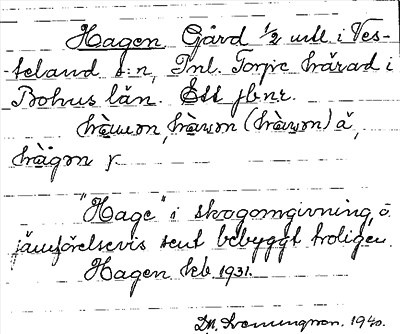 Hagen Gård 1/2 mtl i Ves-
teland s:n, Inl. Torpe härad i
Bohus län. Ett jbnr.
hàɯɷn, hàɯɷn (hàɯɷn) ä,
hàgɷn γ
"Hage" i skogomgivning, o.
jämförelsevis sent bebyggt troligen.
Hagen Keb 1931.
1940.